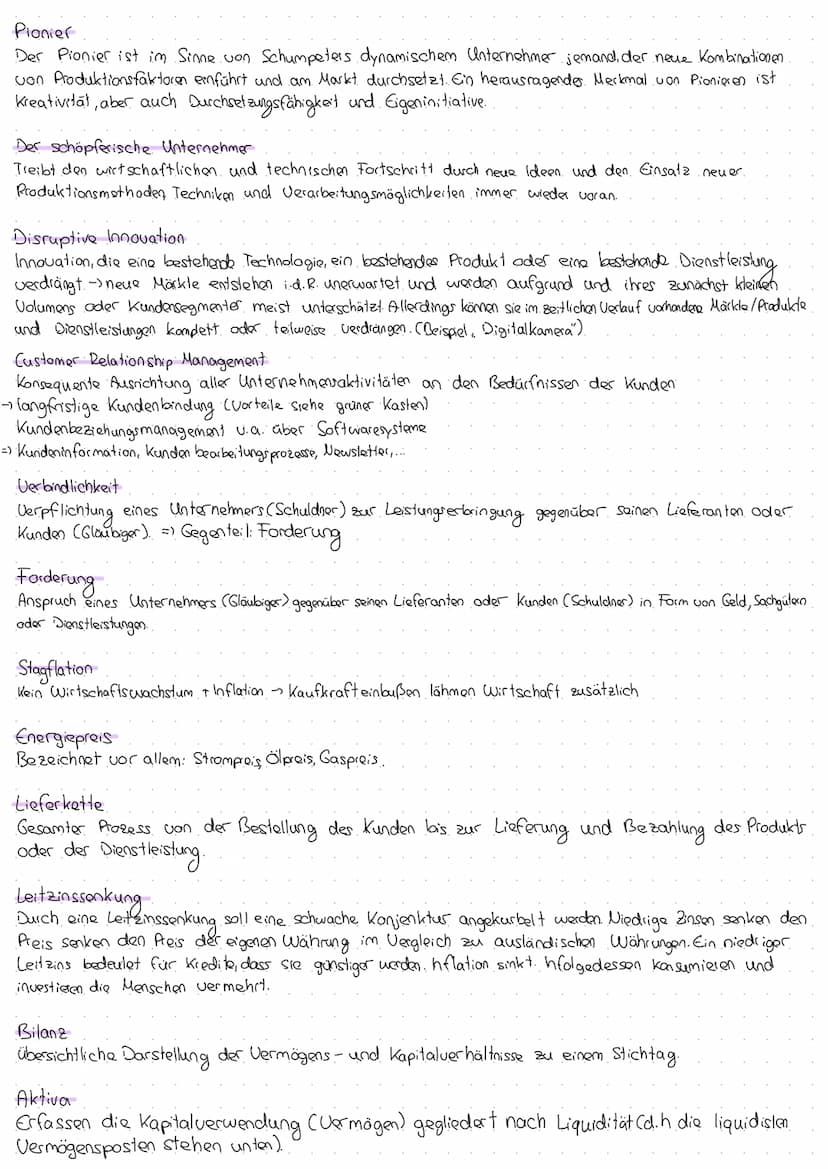 Pionier
Der Pionier ist im Sinne von Schumpeters dynamischem Unternehmer jemand, der neue Kombinationen
von Produktionsfaktoren einführt und am Markt durchsetzt. Ein herausragendes Merkmal von Pionieren ist
Kreativität, aber auch Durchsetzungsfähigkeit und Eigeninitiative.
Der schöpferische Unternehmer
Treibt den wirtschaftlichen und technischen Fortschritt durch neue Ideen und den Einsatz neuer
Produktionsmethoden, Techniken und Verarbeitungsmöglichkeiten immer wieder voran.
Disruptive Innovation
Innovation, die eine bestehende Technologie, ein bestehendes Produkt oder eine bestehende Dienstleistung
verdrängt → neue Märkte entstehen i.d.R. unerwartet und werden aufgrund und ihres zunächst kleinen
Volumens oder Kundensegmentes meist unterschätzt. Allerdings können sie im zeitlichen Verlauf vorhandene Märkte/Produkte
und Dienstleistungen komplett oder teilweise verdrängen. (Beispiel „Digitalkamera")
Customer Relationship Management
Konsequente Ausrichtung aller Unternehmensaktivitäten an den Bedürfnissen der Kunden
→ langfristige Kundenbindung (Vorteile siehe grüner Kasten)
Kundenbeziehungsmanagement u.a. über Softwaresysteme
=> Kundeninformation, Kundenbearbeitungsprozesse, Newsletter,...
Verbindlichkeit
Verpflichtung eines Unternehmers (Schuldner) zur Leistungserbringung gegenüber seinen Lieferanten oder
Kunden (Gläubiger). => Gegenteil: Forderung
Forderung
Anspruch eines Unternehmers (Gläubiger) gegenüber seinen Lieferanten oder Kunden (Schuldner) in Form von Geld, Sachgütern
oder Dienstleistungen.
Stagflation
Kein Wirtschaftswachstum + Inflation → Kaufkrafteinbußen lähmen Wirtschaft zusätzlich
Energiepreis
Bezeichnet vor allem: Strompreis, Ölpreis, Gaspreis.
Lieferkette
Gesamter Prozess von der Bestellung des Kunden bis zur Lieferung und Bezahlung des Produkts
oder der Dienstleistung.
Leitzinssenkung
Durch eine Leitzinssenkung soll eine schwache Konjenktur angekurbelt werden. Niedrige Zinsen senken den
Preis senken den Preis der eigenen Währung im Vergleich zu ausländischen Währungen. Ein niedriger
Leitzins bedeutet für Kredite, dass sie günstiger werden. Inflation sinkt. Infolgedessen konsumieren und
investieren die Menschen vermehrt.
Bilanz
Übersichtliche Darstellung der Vermögens- und Kapitalverhältnisse zu einem Stichtag.
Aktiva
Erfassen die Kapitalverwendung (Vermögen) gegliedert nach Liquidität (d.h die liquidisten
Vermögensposten stehen unten).